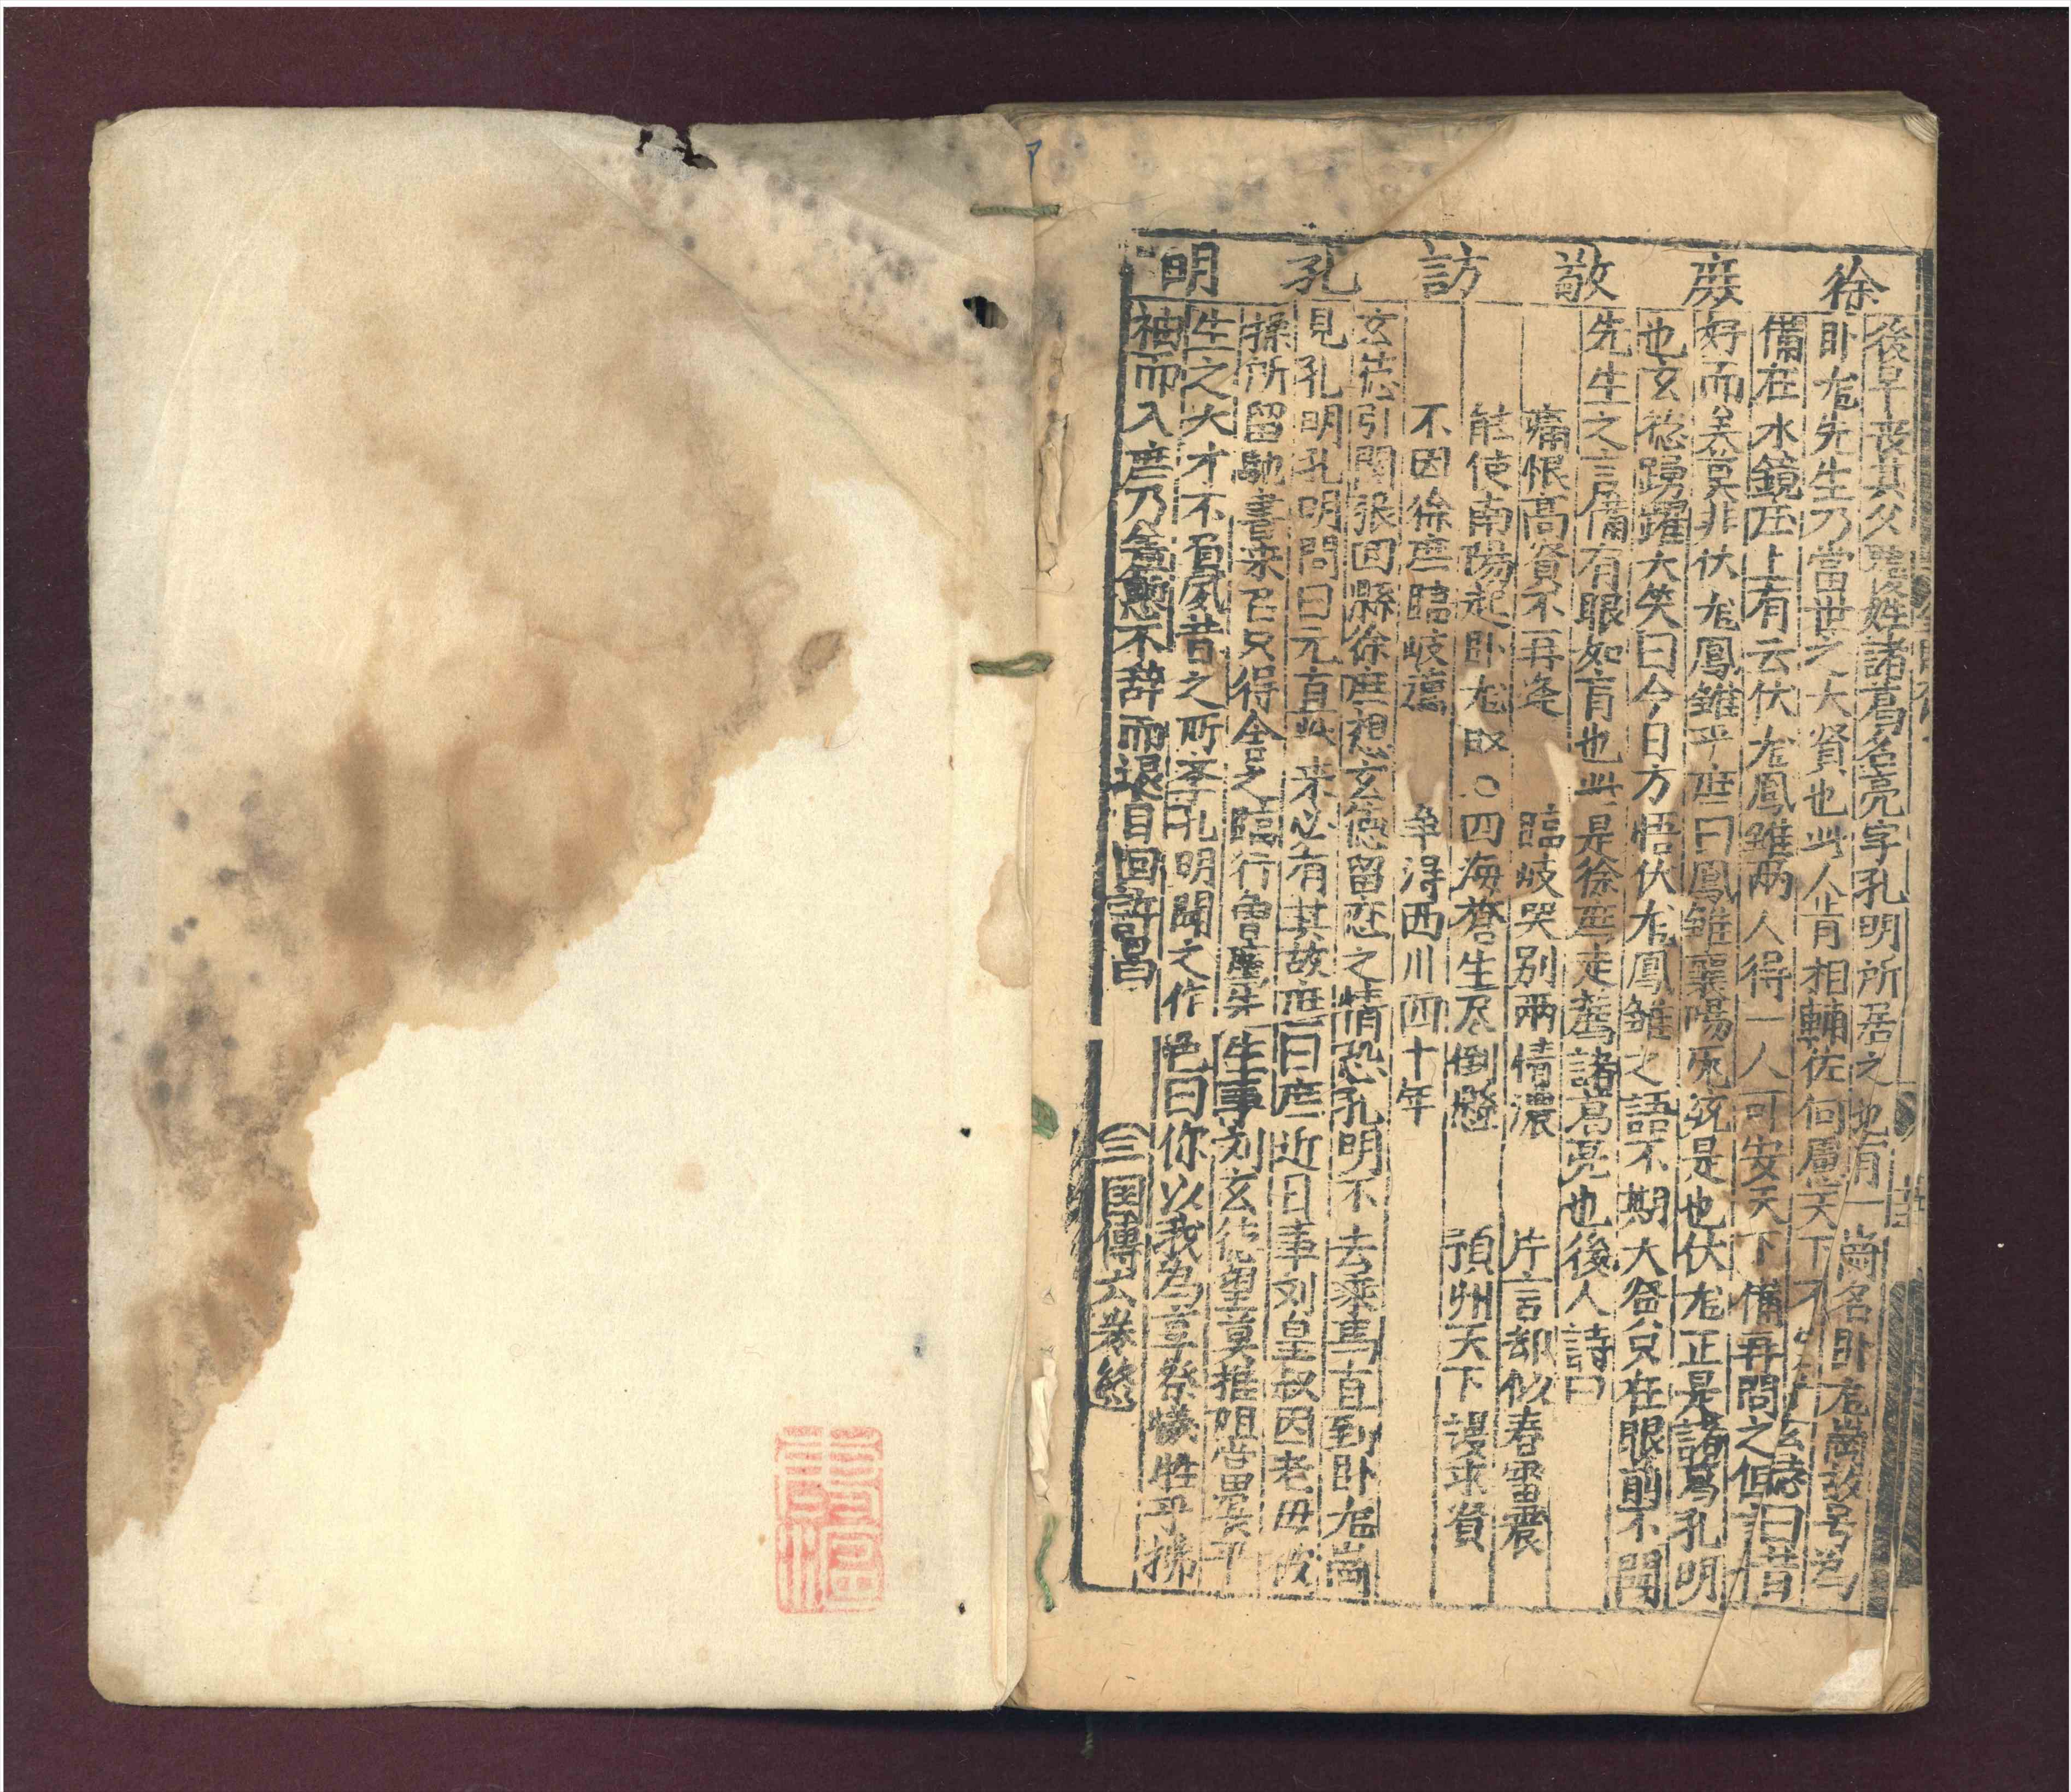 徐庶敬訪孔明
後早喪其父覆姓諸葛名亮字孔明所居之地有一崗名卧龙崗故号为
卧龙先生乃當世之大賢也此人肯相輔佐何慮天下不 玄德曰昔
備在水鏡庄上有云伏龙鳳雏兩人得一人可安天下備再問之但
好而美莫非伏龙鳳雏乎庶曰鳳雏襄陽庞统是也伏龙正是諸葛孔明
也玄德踴躍大笑曰今日方悟伏龙鳳雏之語不期大賢只在眼前不聞
先生之言備有眼如盲也此是徐庶走薦諸葛亮也後人詩曰
痛恨高賢不再逢 臨岐哭别兩情濃 片言却似春雷震
能使南陽起卧龙 〇四海蒼生尽倒懸 預州天下謾求賢
不因徐庶臨岐薦 争淂西川四十年
玄德引関張回縣徐庶想玄德留恋之情恐孔明不去乘馬直到卧龙崗
見孔明孔明問曰元直此来必有其故庶曰庶近日事刘皇叔因老母被
操所留馳書来召只得舍之臨行曾荐先生事刘玄德望莫推阻当展平
生之大才不負夙昔之所李孔明聞之作色曰你以我為享祭犧牲乎拂
袖而入庶乃羞慙不辞而退自回許昌
三国傳六卷終